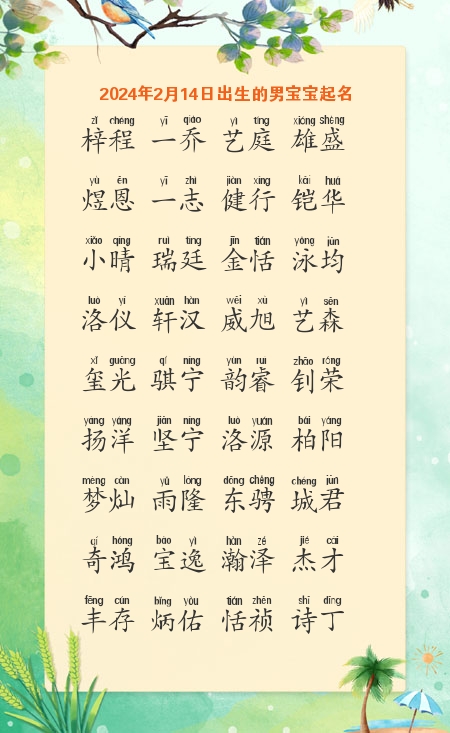 2024年2月14日出生的男宝宝起名
zǐ chéng yī qiáo yì tíng xióng shèng
梓程 一乔 艺庭 雄盛
yù ēn yī zhì jiàn xíng kǎi huá
煜恩 一志 健行 铠华
xiǎo qíng ruì tíng jīn tián yǒng jūn
小晴 瑞廷 金恬 泳均
luò yí xuān hàn wēi xù yì sēn
洛仪 轩汉 威旭 艺森
xǐ guāng qí níng yùn ruì zhāo róng
玺光 骐宁 韵睿 钊荣
yáng yáng jiān níng luò yuán bǎi yáng
扬洋 坚宁 洛源 柏阳
mèng càn yǔ lóng dōng chěng chéng jūn
梦灿 雨隆 东骋 城君
qí hóng bǎo yì hàn zé jié cái
奇鸿 宝逸 瀚泽 杰才
fēng cún bǐng yòu tián zhēn shī dīng
丰存 炳佑 恬祯 诗丁